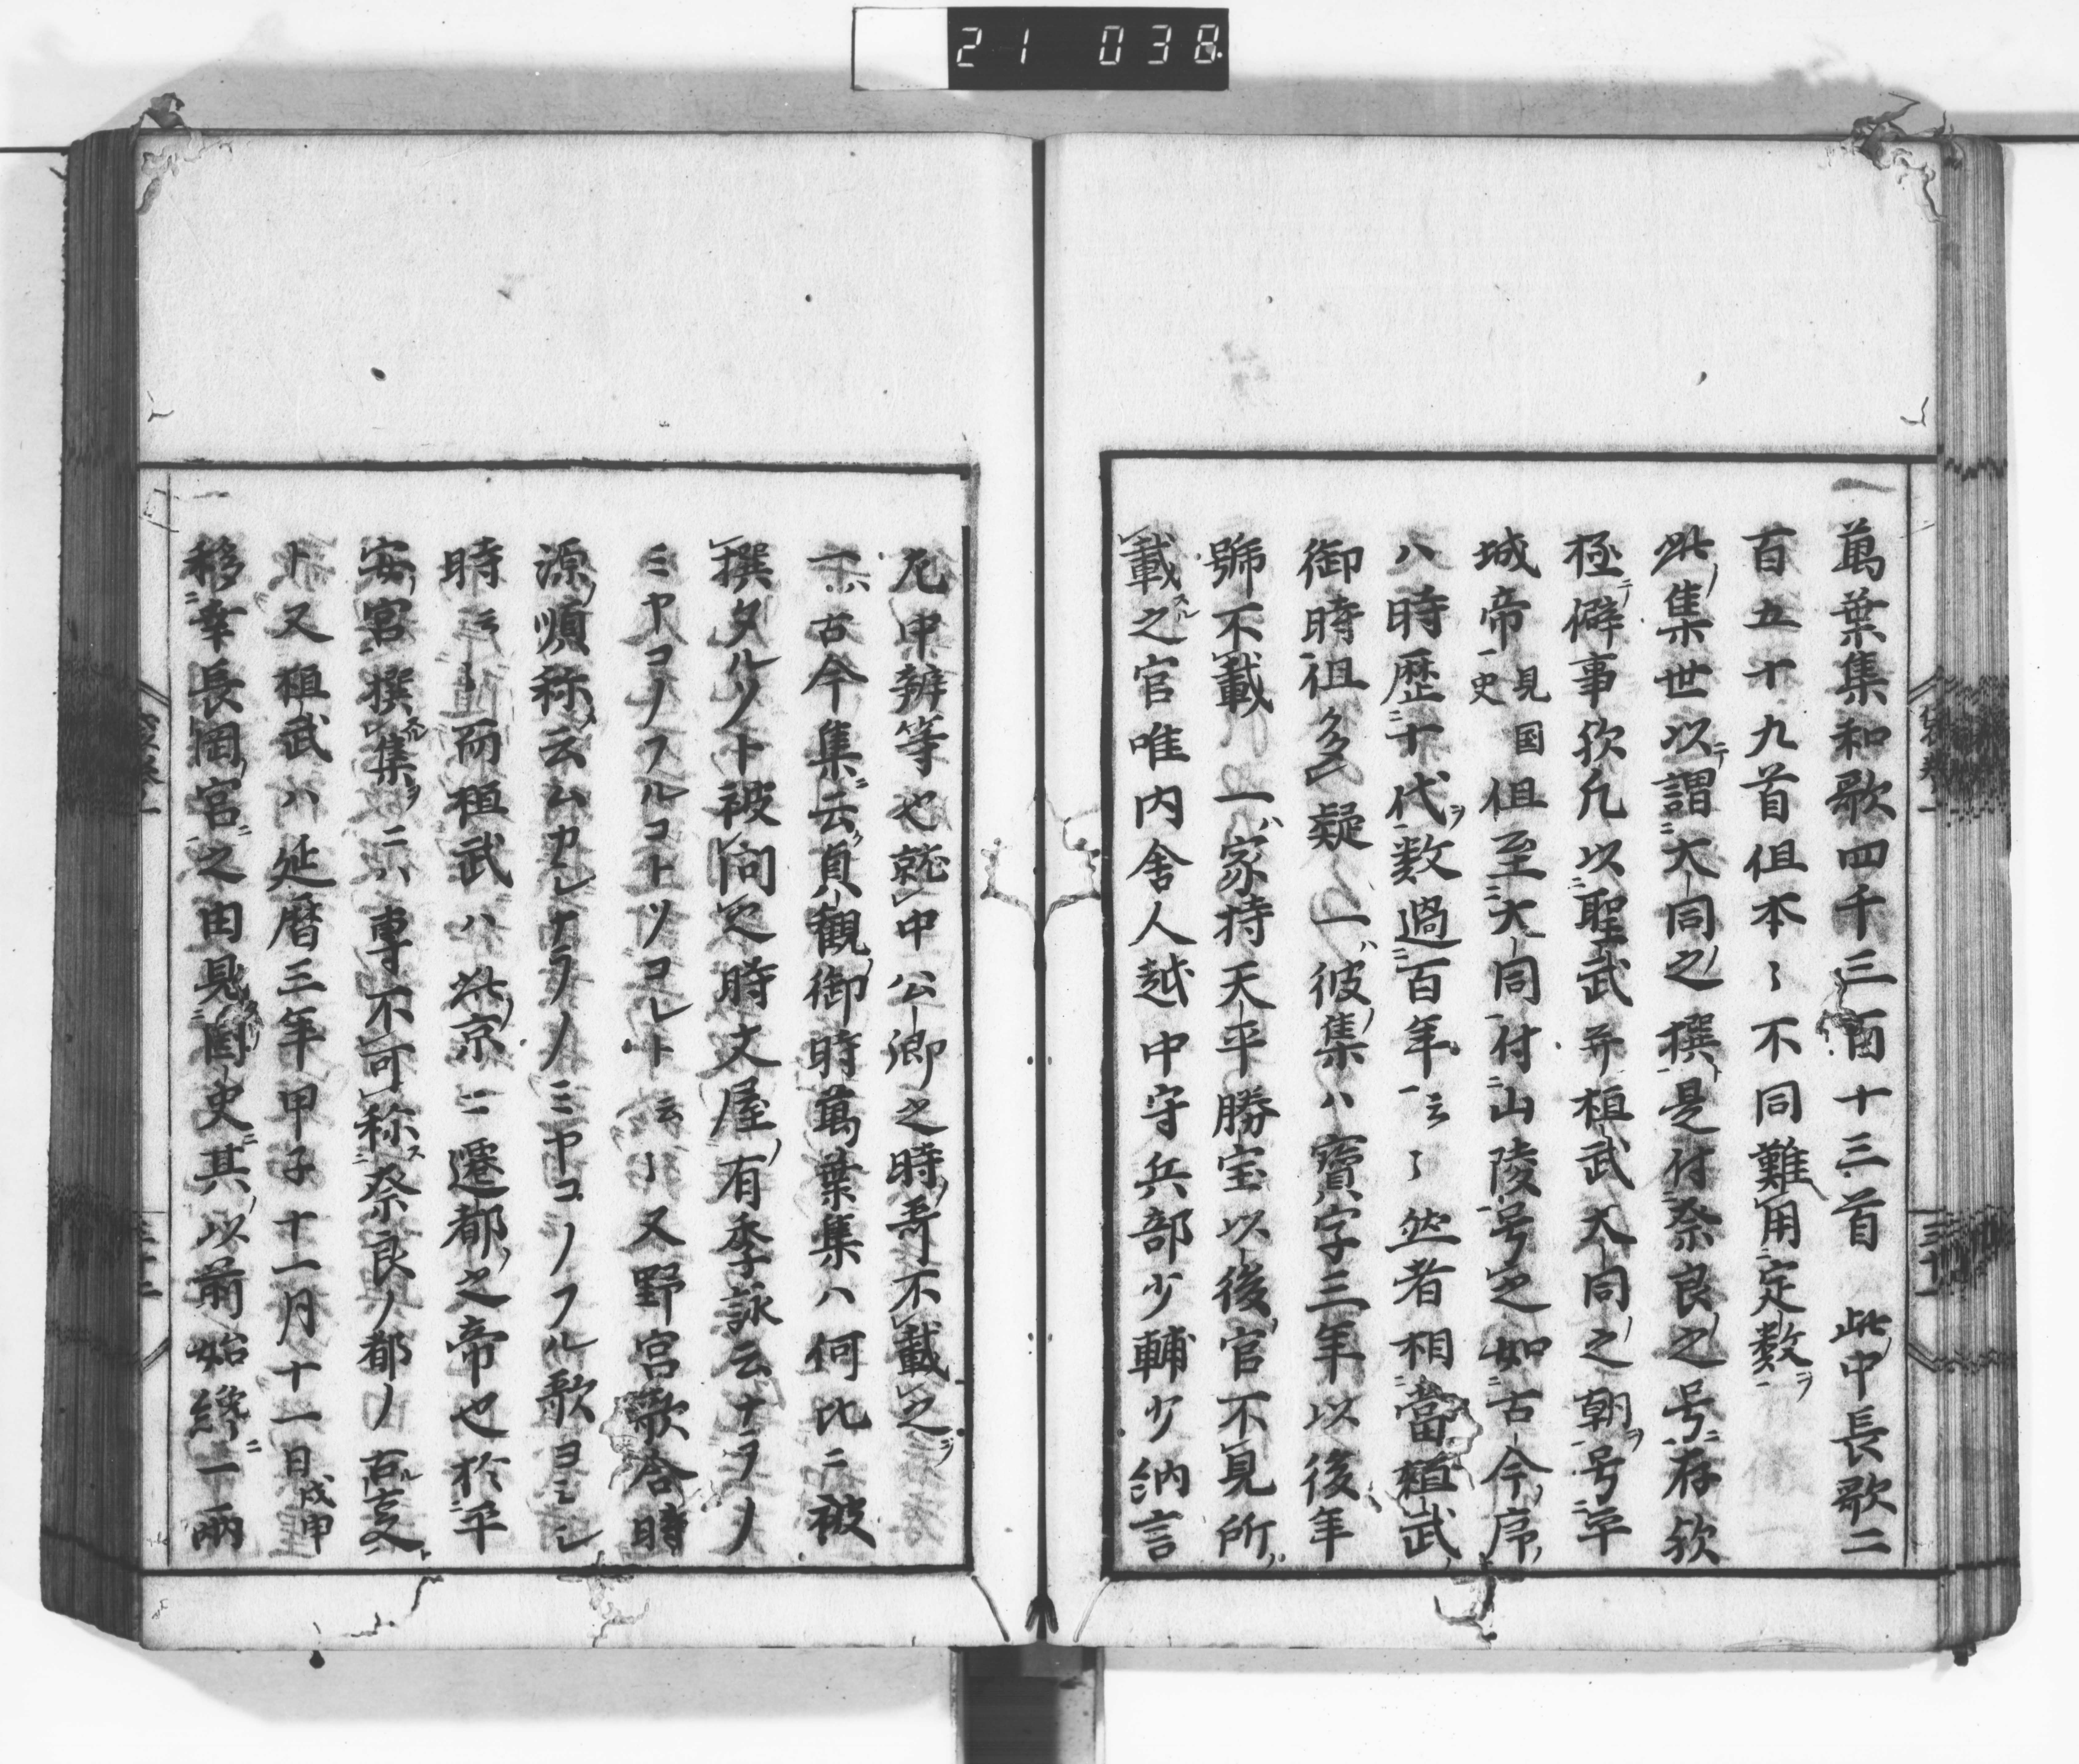 21 038
一萬葉集和歌四千三百十三首 此中長歌二
百五十九首但本〻不同難用定数
此集世以謂大同之撰是付奈良之号存欤
極僻事欤凡以聖武并桓武大同之朝号平
城帝見国史但至大同付山陵号之如古今序
ハ時歴十代数過百年云〻然者相當桓武
御時但多疑一ハ彼集ハ寳字三年以後年
號不載一ハ家持天平勝宝以後官不見所
載之官唯内舎人越中守兵部少輔少納言
左中辨等也就中公卿之時哥不載之
一ハ古今集云貞觀御時萬葉集ハ何比ニ被
撰タルソト被問之時文屋有季詠云ナラノ
ミヤコノフルコトソコレト云〻又野宮歌合時
源順称云ムカシナラノミヤコノフル歌ヨミシ
時云〻而桓武ハ此京ニ遷都之帝也於平
安宮撰集ヲハ専不可称奈良ノ都ノ古支
ト又桓武ハ延暦三年甲子十一月十一日戊申
移幸長岡宮之由見國史其以前始纔一両